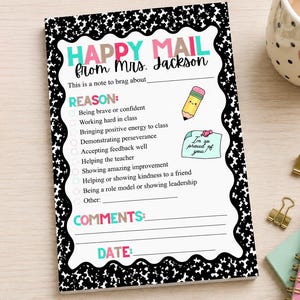 HAPPY MAIL
from Mrs. Jackson
This is a note to brag about
REASON:
Being brave or confident
Working hard in class
Bringing positive energy to class
Demonstrating perseverance
Accepting feedback well
Helping the teacher
Showing amazing improvement
Helping or showing kindness to a friend
Being a role model or showing leadership
Other:
I'm so
proud of
you!
COMMENTS:
DATE: